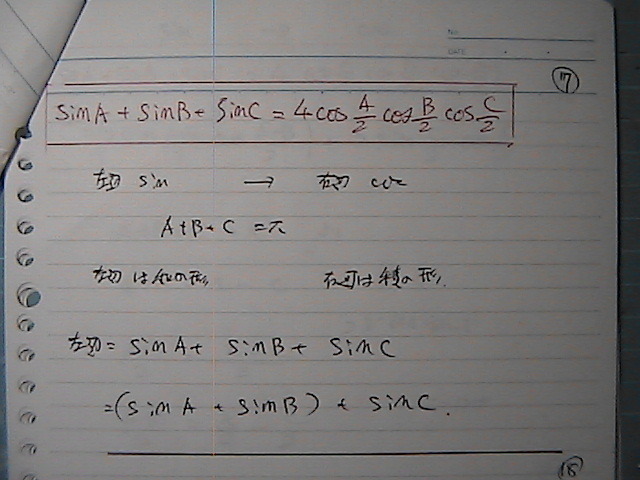 No.
DATE
⑰
sinA + sinB + sinC = 4cos A/2 cos B/2 cos C/2
左辺 sin → 右辺 cos
A+B+C = π
左辺は和の形 右辺は積の形.
左辺 = sinA + sinB + sinC
=(sinA + sinB) + sinC.
⑱